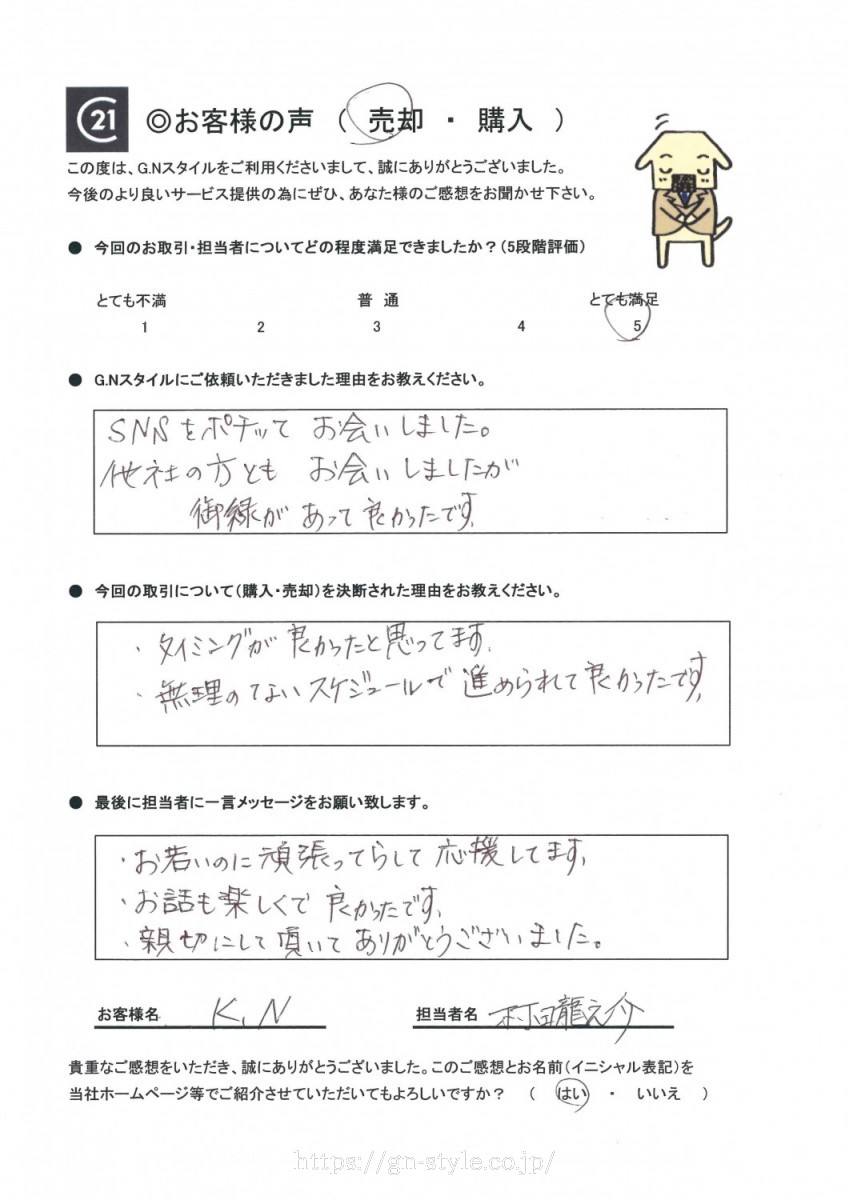 C21
◎お客様の声 ( 売却 ・ 購入 )
この度は、G.Nスタイルをご利用くださいまして、誠にありがとうございました。
今後のより良いサービス提供の為にぜひ、あなた様のご感想をお聞かせ下さい。
● 今回のお取引・担当者についてどの程度満足できましたか？(5段階評価)
とても不満 普 通 とても満足
1 2 3 4 5
● G.Nスタイルにご依頼いただきました理由をお教えください。
SNSをポチッて お会いしました。
他社の方とも お会いしましたが
御縁が あって 良かったです
● 今回の取引について(購入・売却)を決断された理由をお教えください。
・タイミングが 良かったと思ってます。
・無理のてないスケジュールで 進められて良かったです。
● 最後に担当者に一言メッセージをお願い致します。
・お若いのに頑張ってらして 応援してます。
・お話も楽しくで 良かったです。
・親切にして頂いて ありがとうございました。
お客様名 K.N 担当者名 村田龍之介
貴重なご感想をいただき、誠にありがとうございました。このご感想とお名前(イニシャル表記)を
当社ホームページ等でご紹介させていただいてもよろしいですか？ ( はい ・ いいえ )
https://gn-style.co.jp/